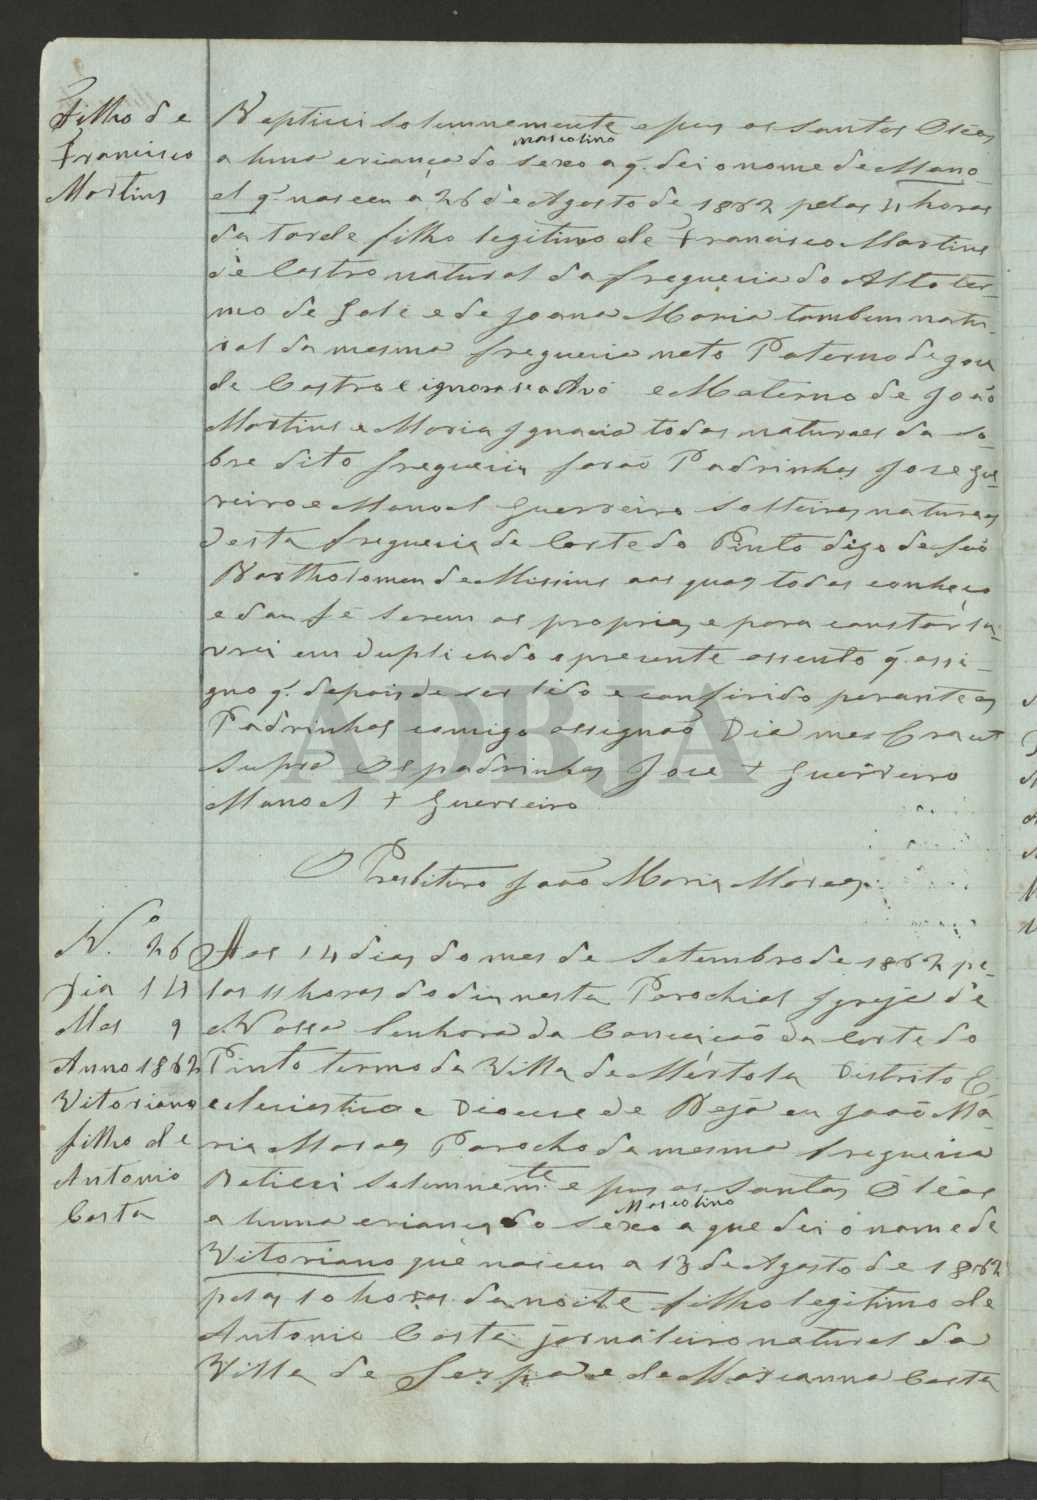 Filho de
Francisco
Martins
Baptizei solemnemente e puz os Santos Oleos
a huma criança do sexo masculino a q. dei o nome de Mano-
el q. nasceu a 26 de Agosto de 1862 pelas 11 horas
da tarde filho legitimo de Francisco Martins
de Castro natural da freguezia do Alto ter-
mo de Solé e de Joana Maria tambem natu-
ral da mesma freguezia neto Paterno de
de Castro e ignora se a Avó e Materno de João
Martins e Maria Ignacia todos naturaes da so-
bre dito freguezia forão Padrinhos Jose Gue-
reiro e Manoel Guerreiro solteiros naturaes
desta freguezia de Corte do Pinto digo de São
Bartholomeu de Missins aos quaes todos conheço
e dou fé serem os proprios e para constar la-
vrei em duplicado o prezente assento q. assi-
gno q. depois de ser lido e conferido perante os
Padrinhos comigo assignão Dia mes Era ut
supra Os padrinhos Jose + Guerreiro
Manoel + Guerreiro
O Presbitero João Maria Moraes
N.º 26
Dia 14
Mes 9
Anno 1862
Vitoriano
filho de
Antonio
Costa
Aos 14 dias do mes de Setembro de 1862 pe-
las 11 horas do dia nesta Parochial Igreja de
Nossa Senhora da Conceição da Corte do
Pinto termo da Villa de Mertola Distrito E-
cleziastico e Diocese de Beja eu João Ma-
ria Moraes Parocho da mesma freguezia
Batizei solemnem.te e puz os santos Oleos
a huma criança do sexo Masculino a que dei o nome de
Vitoriano que nasceu a 13 de Agosto de 1862
pelas 10 horas da noite filho legitimo de
Antonio Costa jornaleiro natural da
Villa de Serpa e de Marianna Costa
ADBJA